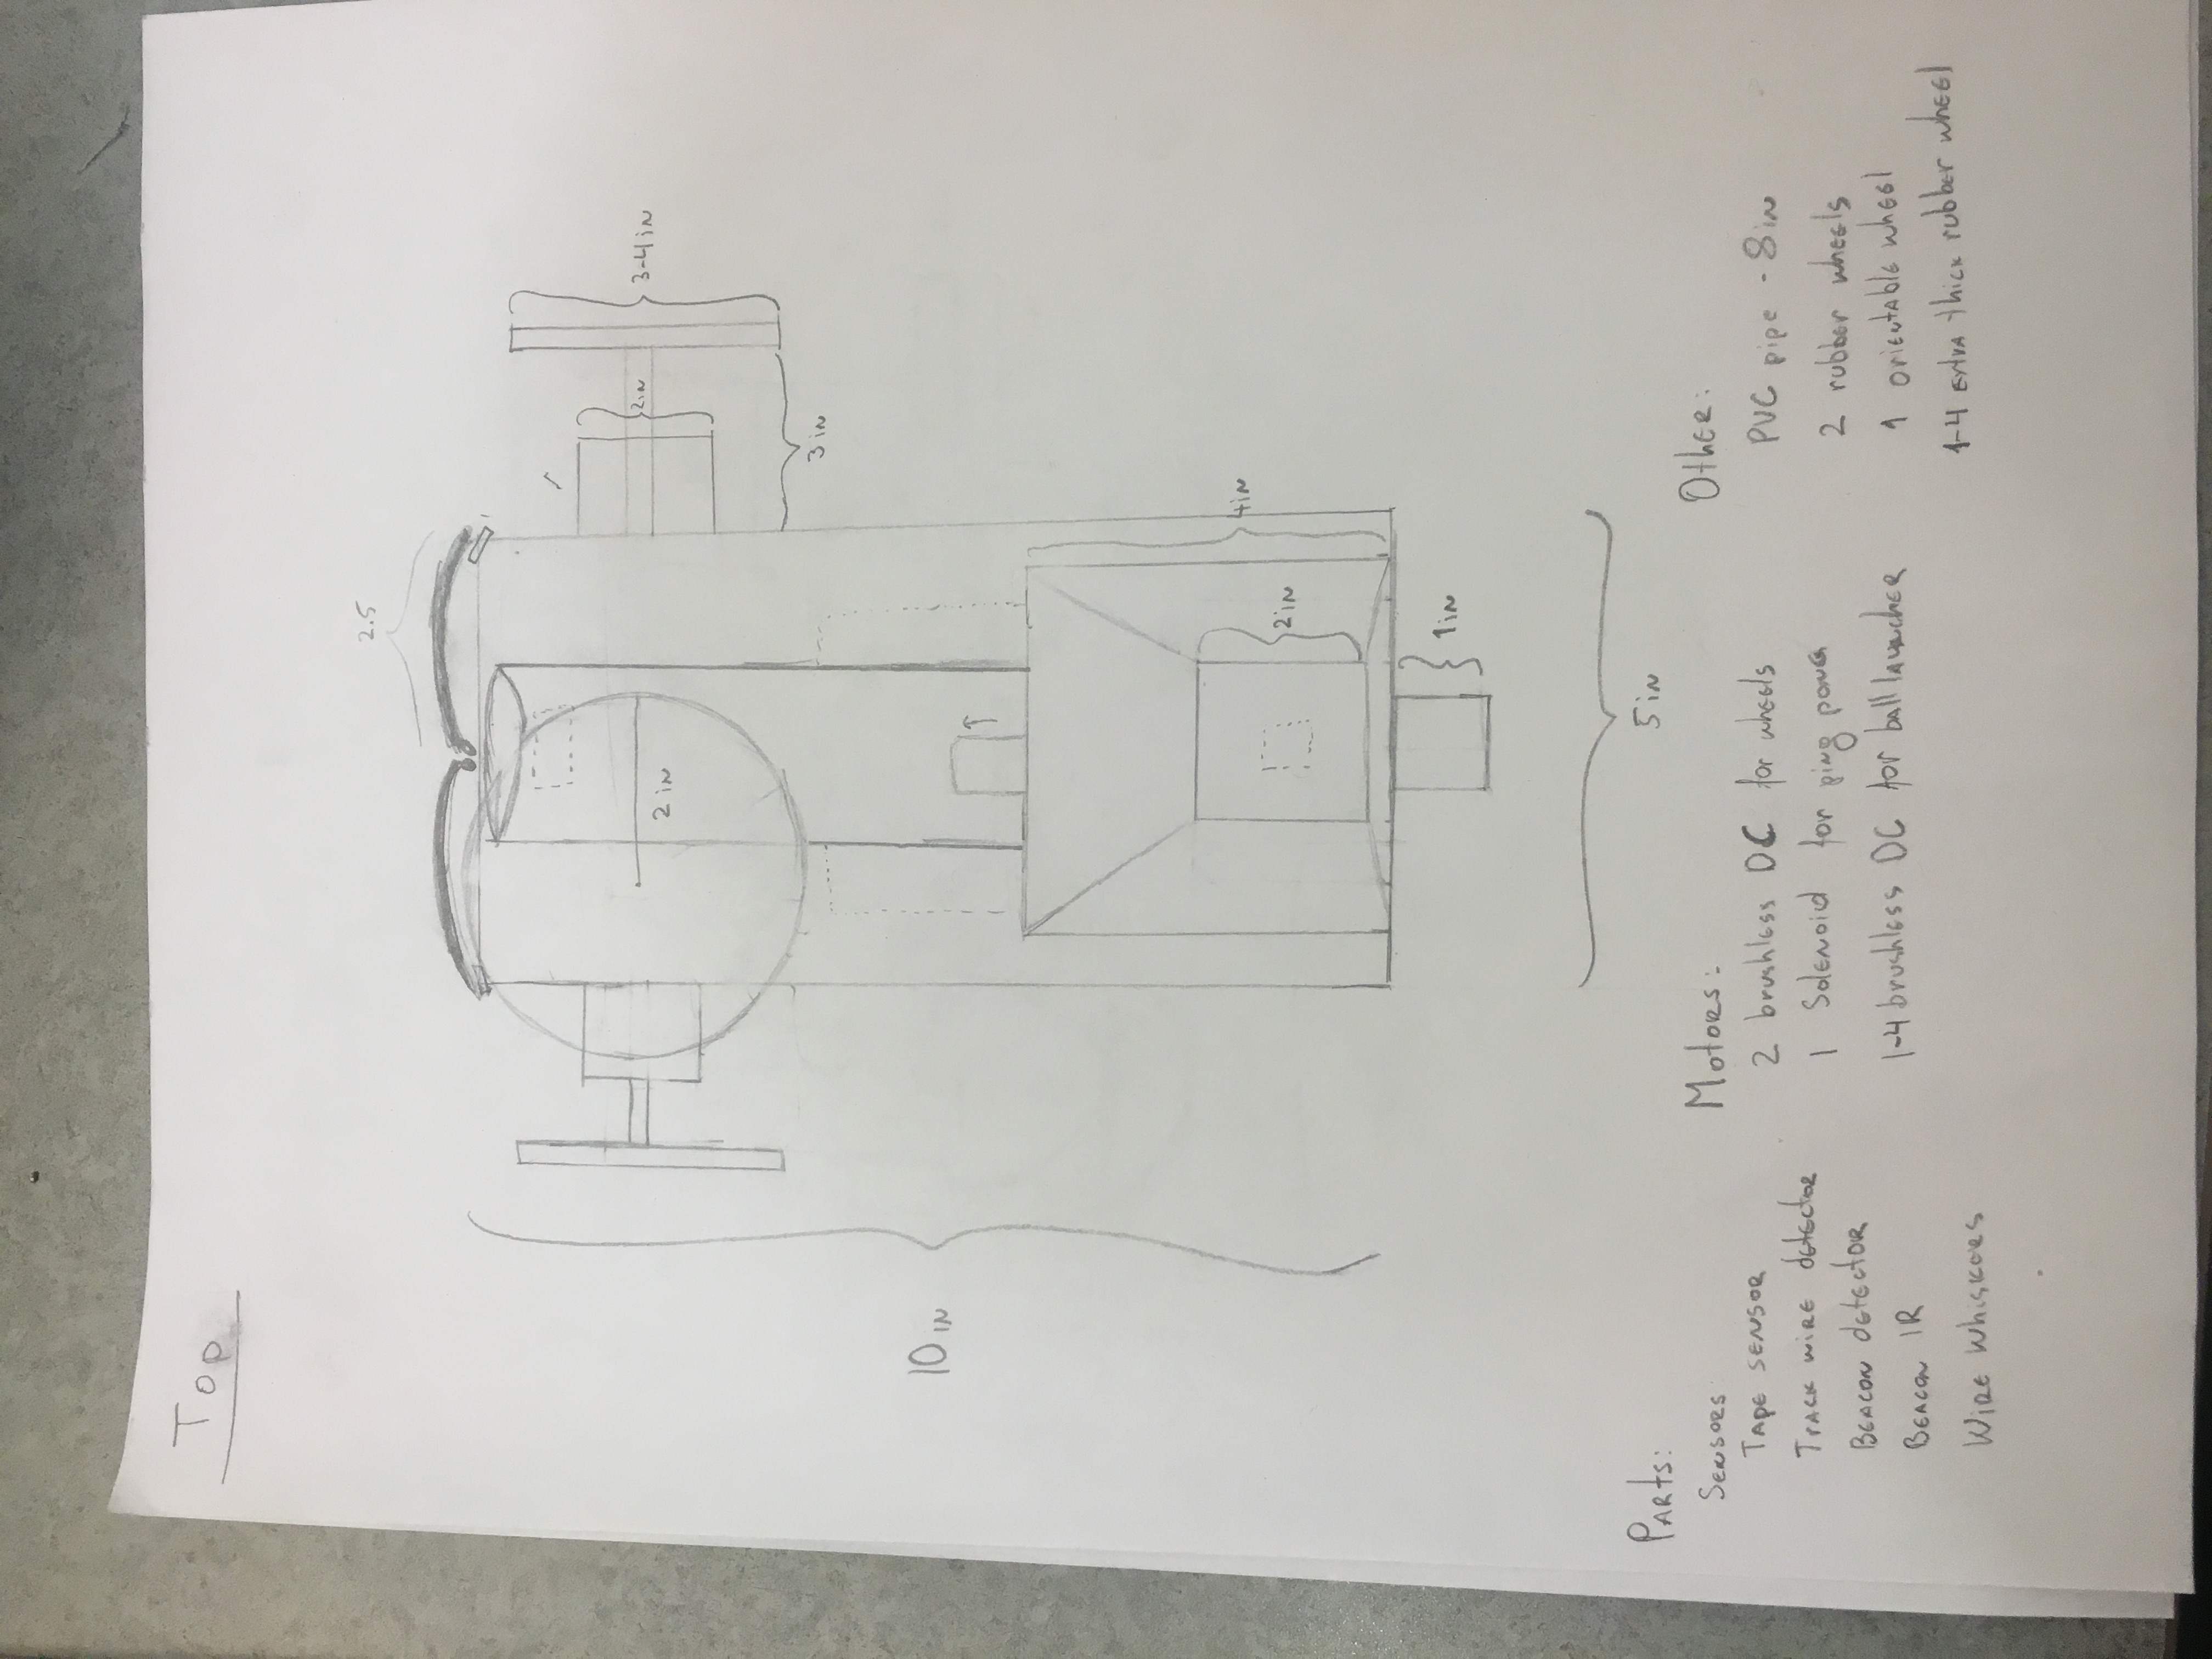 Top
2.5
2 in
2in
3-4in
3 in
10 in
4in
2in
1in
5 in
Parts:
Sensors
Tape sensor
Track wire detector
Beacon detector
Beacon IR
Wire whiskers
Motors:
2 brushless DC for wheels
1 Solenoid for ping pong
1-4 brushless DC for ball launcher
Other:
PVC pipe - 8in
2 rubber wheels
1 orientable wheel
1-4 extra thick rubber wheel